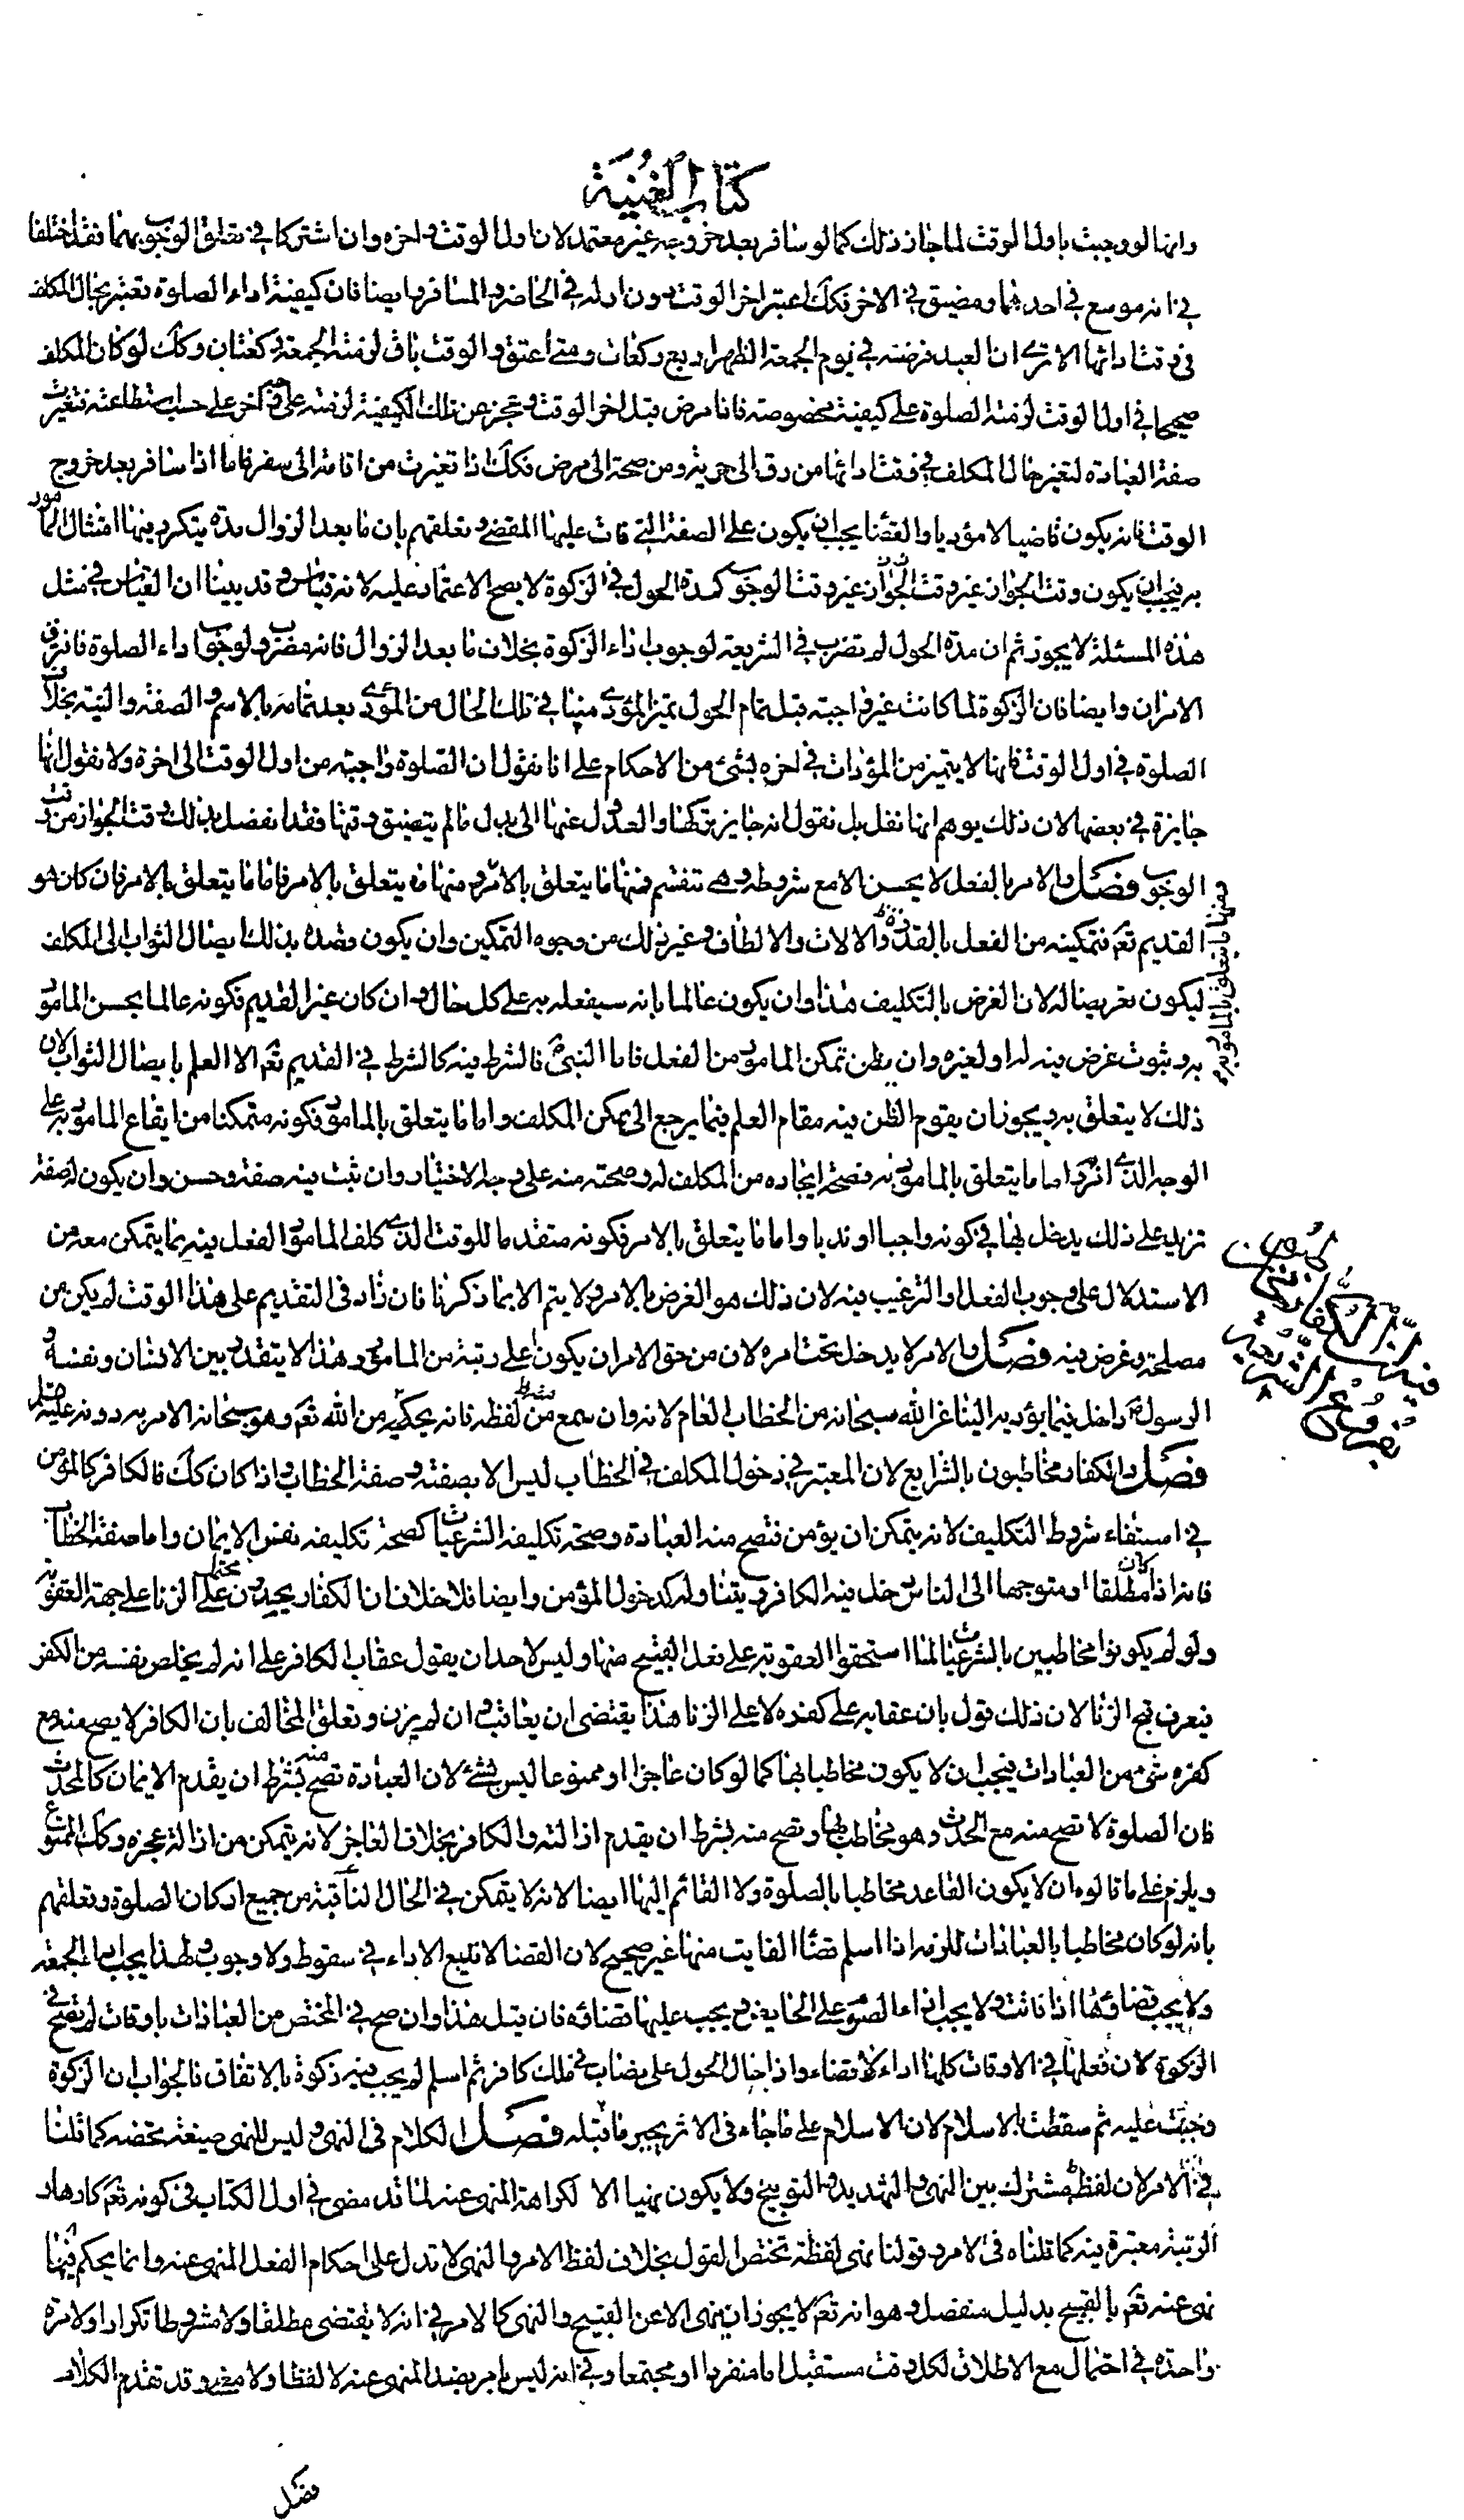 كتاب الغنية
وانها لو وجبت باول الوقت لما جاز ذلك كما لو سافر بعد خروجه غير معتمد لان اول الوقت و اخره وان اشتركا في تعلق الوجوب بهما فقد اختلفا
في انه موسع في احدهما ومضيق في الاخر فكك اعتبر اخر الوقت دون اوله في الحاضر والمسافر وايضا فان كيفية اداء الصلوة تعتبر بحال المكلف
في وقت ادائها الا ترى ان العبد فرضه في يوم الجمعة الظهر اربع ركعات ومتى اعتق والوقت باق لزمته الجمعة ركعتان وكك لو كان المكلف
صحيحا في اول الوقت لزمته الصلوة على كيفية مخصوصة فاذا مرض قبل اخر الوقت وعجز عن تلك الكيفية لزمته على وجه اخر على حسب استطاعته فتغيرت
صفة العبادة لتغير حال المكلف في وقت ادائها من رق الى حرية ومن صحة الى مرض فكك اذا تغيرت من اقامة الى سفر فاما اذا سافر بعد خروج
الوقت فانه يكون قاضيا لا مؤديا والقضاء يجب ان يكون على الصفة التي فات عليها المقضي وتعلقهم بان ما بعد الزوال مدة يتكرر فيها امتثال المأمور
به فيجب ان يكون وقت الجواز غير وقت الوجوب كمدة الحول في الزكوة لا يصح الاعتماد عليه لانه قياس وقد بينا ان القياس في مثل
هذه المسئلة لا يجوز ثم ان مدة الحول لم تضرب في الشريعة لوجوب اداء الزكوة بخلاف ما بعد الزوال فانه مضروب لوجوب اداء الصلوة فافترق
الامران وايضا فان الزكوة لما كانت غير واجبة قبل تمام الحول تميز المؤدى منها في تلك الحال من المؤدى بعد تمامه بالاسم والصفة والنية بخلاف
الصلوة في اول الوقت فانها لا يتميز من المؤداة في اخره بشئ من الاحكام على انا نقول ان الصلوة واجبة من اول الوقت الى اخره ولا نقول انها
جايزة في بعضها لان ذلك يوهم انها نفل بل نقول انه جايز تركها والعدول عنها الى بدل ما لم يتضيق وقتها فقد انفصل بذلك وقت الجواز من وقت
الوجوب فصل والامر بالفعل لا يحسن الا مع شروطه وهي تنقسم فمنها ما يتعلق بالامر ومنها ما يتعلق بالامر فاما ما يتعلق بالامر فان كان هو
ومنها ما يتعلق بالمامور به
القديم تعم فتمكينه من الفعل بالقدرة والالات والالطاف وغير ذلك من وجوه التمكين وان يكون قصده بذلك ايصال الثواب الى المكلف
ليكون تعريضا له لان الغرض بالتكليف هذا وان يكون عالما بانه سيفعله به على كل حال وان كان غير القديم فكونه عالما بحسن المامور
به وثبوت غرض فيه له او لغيره وان يظن تمكن المامور من الفعل فاما النبي فالشرط فيه كالشرط في القديم تعم الا العلم بايصال الثواب لان
ذلك لا يتعلق به ويجوز ان يقوم الظن فيه مقام العلم فيما يرجع الى تمكن المكلف واما ما يتعلق بالمامور فكونه متمكنا من ايقاع المامور به على
الوجه الذي امر به واما ما يتعلق بالمامور به فصحة ايجاده من المكلف له وصحته منه على وجه الاختيار وان ثبت فيه صفة وحسن وان يكون له صفة
تزيد على ذلك يدخل بها في كونه واجبا او ندبا واما ما يتعلق بالامر فكونه متقدما للوقت الذي كلف المامور الفعل فيه بما يتمكن معه من
الاستدلال على وجوب الفعل او الترغيب فيه لان ذلك هو الغرض بالامر ولا يتم الا بما ذكرنا فان زاد في التقديم على هذا الوقت لم يكن من
مصلحة وغرض فيه فصل والامر لا يدخل تحت امره لان من حق الامر ان يكون اعلى رتبة من المامور وهذا لا يتقدر بين الانسان ونفسه و
الرسول داخل فيما يؤديه الينا عن الله سبحانه من الخطاب العام لانه وان سمع من لفظه فانه يحكيه من الله تعم وهو سبحانه الامر به دونه عليه
فيه ان الكفار مكلفون بفروع الشريعة
فصل والكفار مخاطبون بالشرايع لان المعتبر في دخول المكلف في الخطاب ليس الا بصفته وصفة الخطاب واذا كان كك فالكافر كالمؤمن
في استيفاء شروط التكليف لانه يتمكن ان يؤمن فتصح منه العبادة وصحة تكليفه الشرعيات كصحة تكليفه نفس الايمان واما صفة الخطاب
فانه اذا كان مطلقا او متوجها الى الناس دخل فيه الكافر ويتناوله كدخول المؤمن وايضا فلا خلاف ان الكفار يحدون على الزنا على جهة العقوبة
ولو لم يكونوا مخاطبين بالشرعيات لما استحقوا العقوبة على فعل القبيح منها وليس لاحد ان يقول عقاب الكافر على انه لم يخلص نفسه من الكفر
فيعرف قبح الزنا لان ذلك قول بان عقابه على كفره لا على الزنا هذا يقتضى ان يعاقب وان لم يزن وتعلق المخالف بان الكافر لا يصح منه مع
كفره شئ من العبادات فيجب ان لا يكون مخاطبا بها كما لو كان عاجزا او ممنوعا ليس بشئ لان العبادة تصح منه بشرط ان يقدم الايمان كالمحدث
فان الصلوة لا تصح منه مع الحدث وهو مخاطب بها وتصح منه بشرط ان يقدم ازالته والكافر بخلاف العاجز لانه يتمكن من ازالة عجزه وكك الممنوع
ويلزم على ما قالوه ان لا يكون القاعد مخاطبا بالصلوة ولا القائم اليها ايضا لانه لا يتمكن في الحال الثانية من جميع اركان الصلوة وتعلقهم
بانه لو كان مخاطبا بالعبادات للزمه اذا اسلم قضاء الفايت منها غير صحيح لان القضا لا يتبع الاداء في سقوط ولا وجوب ولهذا يجب اداء الجمعة
ولا يجب قضاؤها اذا فاتت ولا يجب اداء الصوم على الحايض ويجب عليها قضاؤه فان قيل هذا وان صح في المختص من العبادات باوقات لم يصح في
الزكوة لان فعلها في الاوقات كلها اداء لا قضاء واذا حال الحول على نصاب في ملك كافر ثم اسلم لم يجب فيه زكوة بالاتفاق فالجواب ان الزكوة
وجبت عليه ثم سقطت بالاسلام لان الاسلام على ما جاء في الاثر يجبر ما قبله فصل الكلام في النهى وليس للنهى صيغة تخصه كما قلنا
في الامر لان لفظه مشترك بين النهى والتهديد والتوبيخ ولا يكون نهيا الا لكراهة المنهى عنه لما قد مضى في اول الكتاب في كونه تعم كارها و
الرتبة معتبرة فيه كما قلناه في الامر وقولنا نهى لفظة تختص القول بخلاف لفظ الامر والنهى لا تدل على احكام الفعل المنهى عنه وانما يحكم فيما
نهى عنه تعم بالقبيح بدليل منفصل وهو انه تعم لا يجوز ان ينهى الا عن القبيح والنهى كالامر في انه لا يقتضى مطلقا ولا مشروطا تكرارا ولا مرة
واحدة في احتمال مع الاطلاق لكل وقت مستقبل اما منفردا او مجتمعا وفي انه ليس بامر بضد المنهى عنه لا لفظا ولا معنى وقد تقدم الكلام
فصل